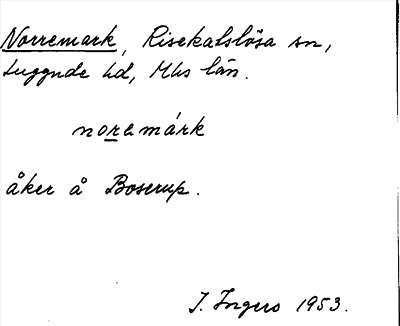 Norremark, Risekatslösa sn,
Luggude hd, Mhs län.
noremárk
åker å Boserup.
J. Ingers 1953.